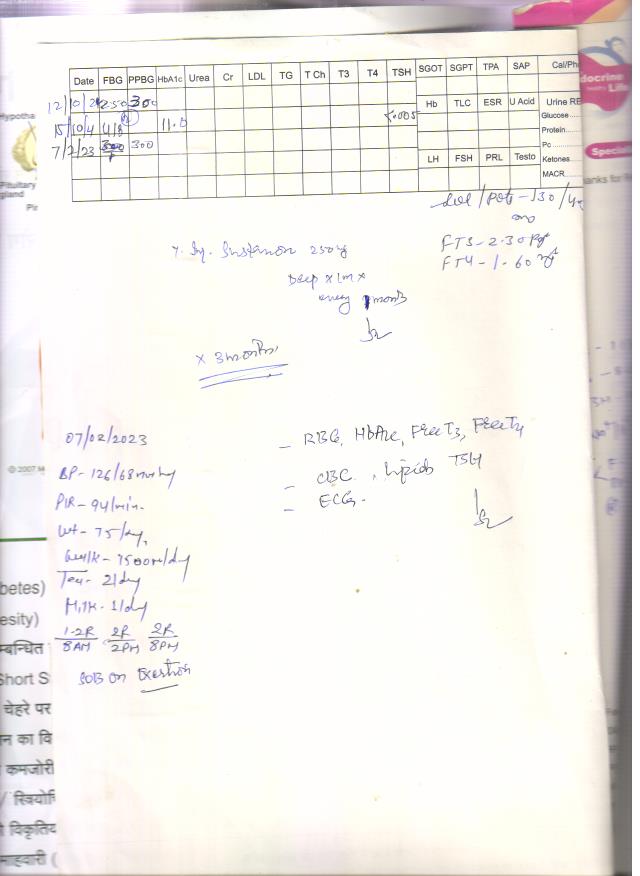 docrine
Life
Date FBG PPBG HbA1c Urea Cr LDL TG T Ch T3 T4 TSH SGOT SGPT TPA SAP Cal/Ph
12/10/2 250 300
Hb TLC ESR U Acid Urine RE
Hypotha
15/10/4 418 11.0 <.0005
Glucose
Protein
7/2/23 300 300
Pc
LH FSH PRL Testo Ketones
MACR
Special
anks for
Pituitary
gland
Pit
/ Pots - 130 / 4
FT3 - 2.30 Pg
FT4 - 1.60 ng
Inj. Sustanon 250 mg
Deep x Im x
every 1 month
x 3 months
07/02/2023
- RBG, HbA1c, Free T3, Free T4
TSH
BP - 126/68 mmhg
- CBC, Lipids
P/R - 94/min.
- ECG.
© 2007 M
Wt - 75/kg,
Walk - 7500 m/day
Tea - 2/day
Milk - 1/day
1-2R 2R 2R
8AM 2PM 8PM
SOB on Exertion
betes)
esity)
म्बन्धित
Short S
चेहरे पर
न का वि
कमजोरी
/ स्त्रियोचि
विकृतिय
माहवारी (